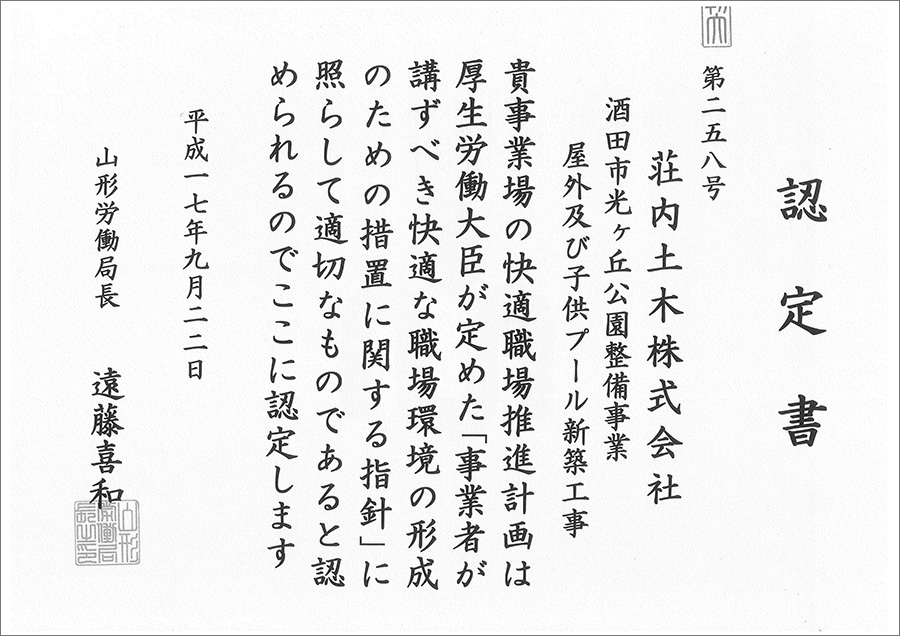 認定書
第二五八号
荘内土木株式会社
酒田市光ヶ丘公園整備事業
屋外及び子供プール新築工事
貴事業場の快適職場推進計画は
厚生労働大臣が定めた「事業者が
講ずべき快適な職場環境の形成
のための措置に関する指針」に
照らして適切なものであると認
められるのでここに認定します
平成一七年九月二二日
山形労働局長 遠藤喜和
山形
労働局
長之印